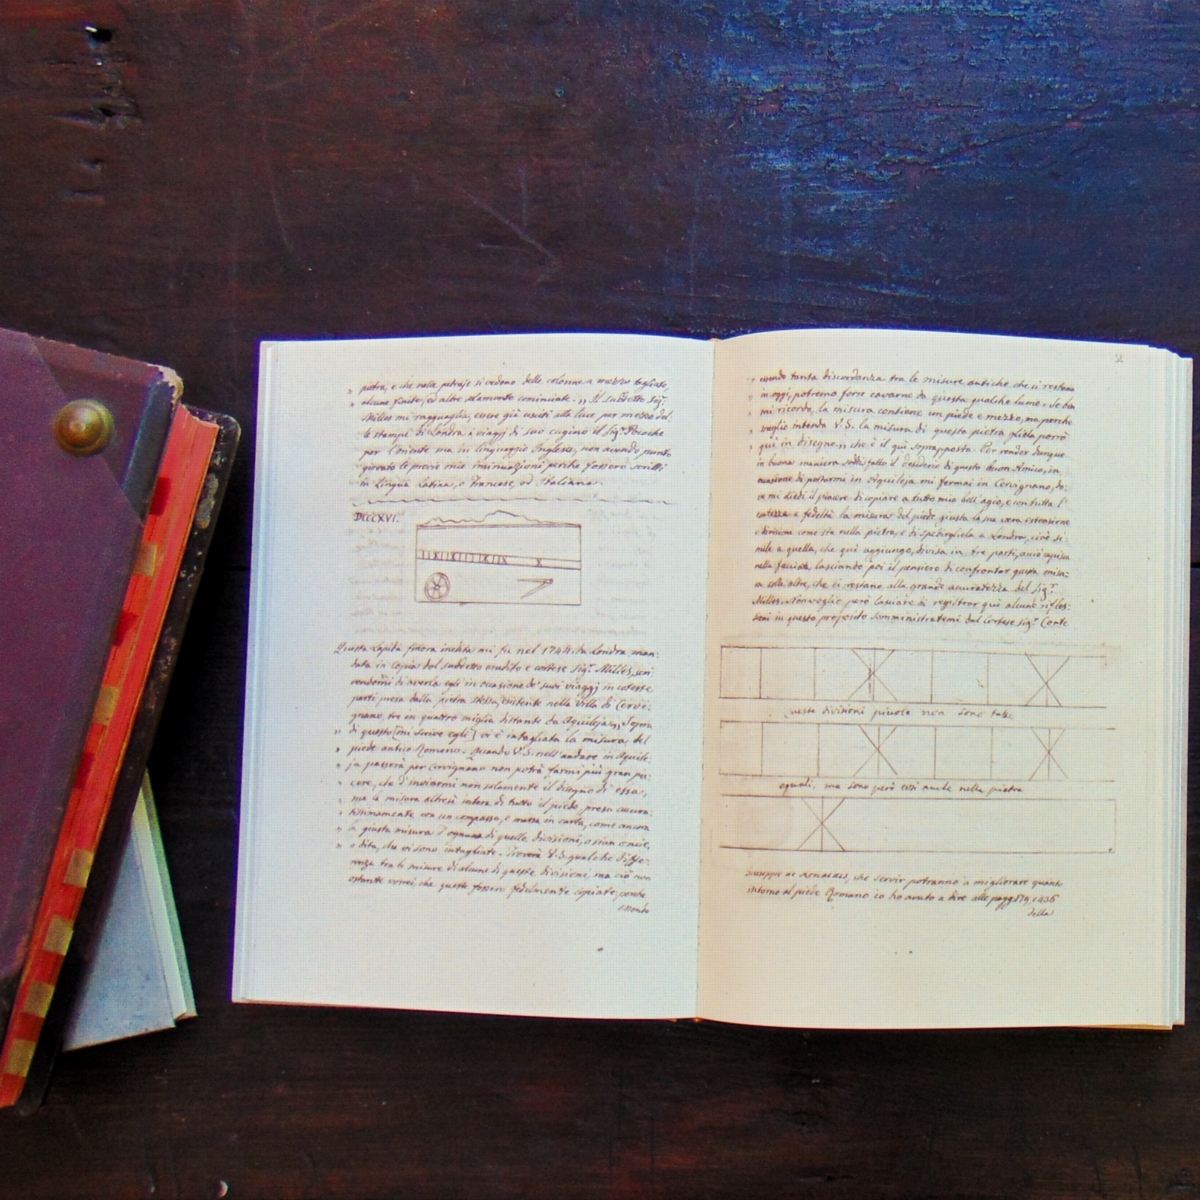 pietra, e che nelle petraje si vedono delle colonne a mezzo tagliate,
alcune finite, ed altre solamente cominciate. Il suddetto Sig.r
Milles mi ragguaglia, essere già usciti alla luce per mezzo del-
le stampe di Londra i viaggj di suo cugino il Sig.r Pococke
per l'oriente ma in linguaggio Inglese, non avendo punto
giovato le previe mie insinuazioni perché fossero scritti
in Lingua Latina, o Francese, od Italiana.
DCCCXVI.
Questa Lapida finora inedita mi fu nel 1744 da Londra man-
data in copia dal suddetto erudito e cortese Sig.r Milles, sen
averla egli in occasione de' suoi viaggj in coteste
parti presa dalla pietra stessa, esistente nella Villa di Cervi-
gnano, tre in quattro miglia distante da Aquileja. Sopra
di questo (mi scrive egli) vi è intagliata la misura del
piede antico Romano. Quando V.S. nell'andare in Aquile-
ja passerà per Cervignano non potrà farmi più gran pia-
cere, che d'inviarmi non solamente il disegno di essa,
ma la misura altresì intera di tutto il piede presa accura-
tissimamente con un compasso, e messa in carta, come ancora
la giusta misura d'ognuna di quelle divisioni, o sian oncie,
o dita, che vi sono intagliate. Troverà V.S. qualche diffe-
renza tra le misure di alcune di queste divisioni, ma ciò non
ostante vorrei, che queste fossero fedelmente copiate, perché
essendo
essendo tanta discordanza tra le misure antiche, che ci restano
in oggi, potremo forse cavarne da questa qualche lume. Se ben
mi ricordo, la misura contiene un piede e mezzo, ma perché
meglio intenda V.S. la misura di questa pietra porrò
quì in disegno, che è il quì soprapposto. Per render dunque
in buona maniera soddisfatto il desiderio di questo buon Amico, in
occasione di portarmi in Aquileja mi fermai in Cervignano, do-
ve mi diedi il piacere di copiare a tutto mio bell'agio, e con tutta l'
esatezza e fedeltà la misura del piede giusta la sua vera estensione
e divisione come sta nella pietra, e di spedirgliela a Londra, cioè si-
mile a quella, che quì aggiungo, divisa in tre parti,
nella facciata, lasciando poi il pensiere di confrontar questa misu-
ra colle altre, che ci restano alla grande accuratezza del Sig.r
Milles. Non voglio però lasciare di registrar quì alcune rifles-
sioni in questo proposito somministratemi dal cortese Sig.r Conte
queste divisioni picciole non sono tutte
eguali, ma sono però così anche nella pietra
Giuseppe de Renaldis, che servir potranno a migliorare quanto
intorno al piede Romano io ho avuto a dire alle pagg. 179, e 436
della